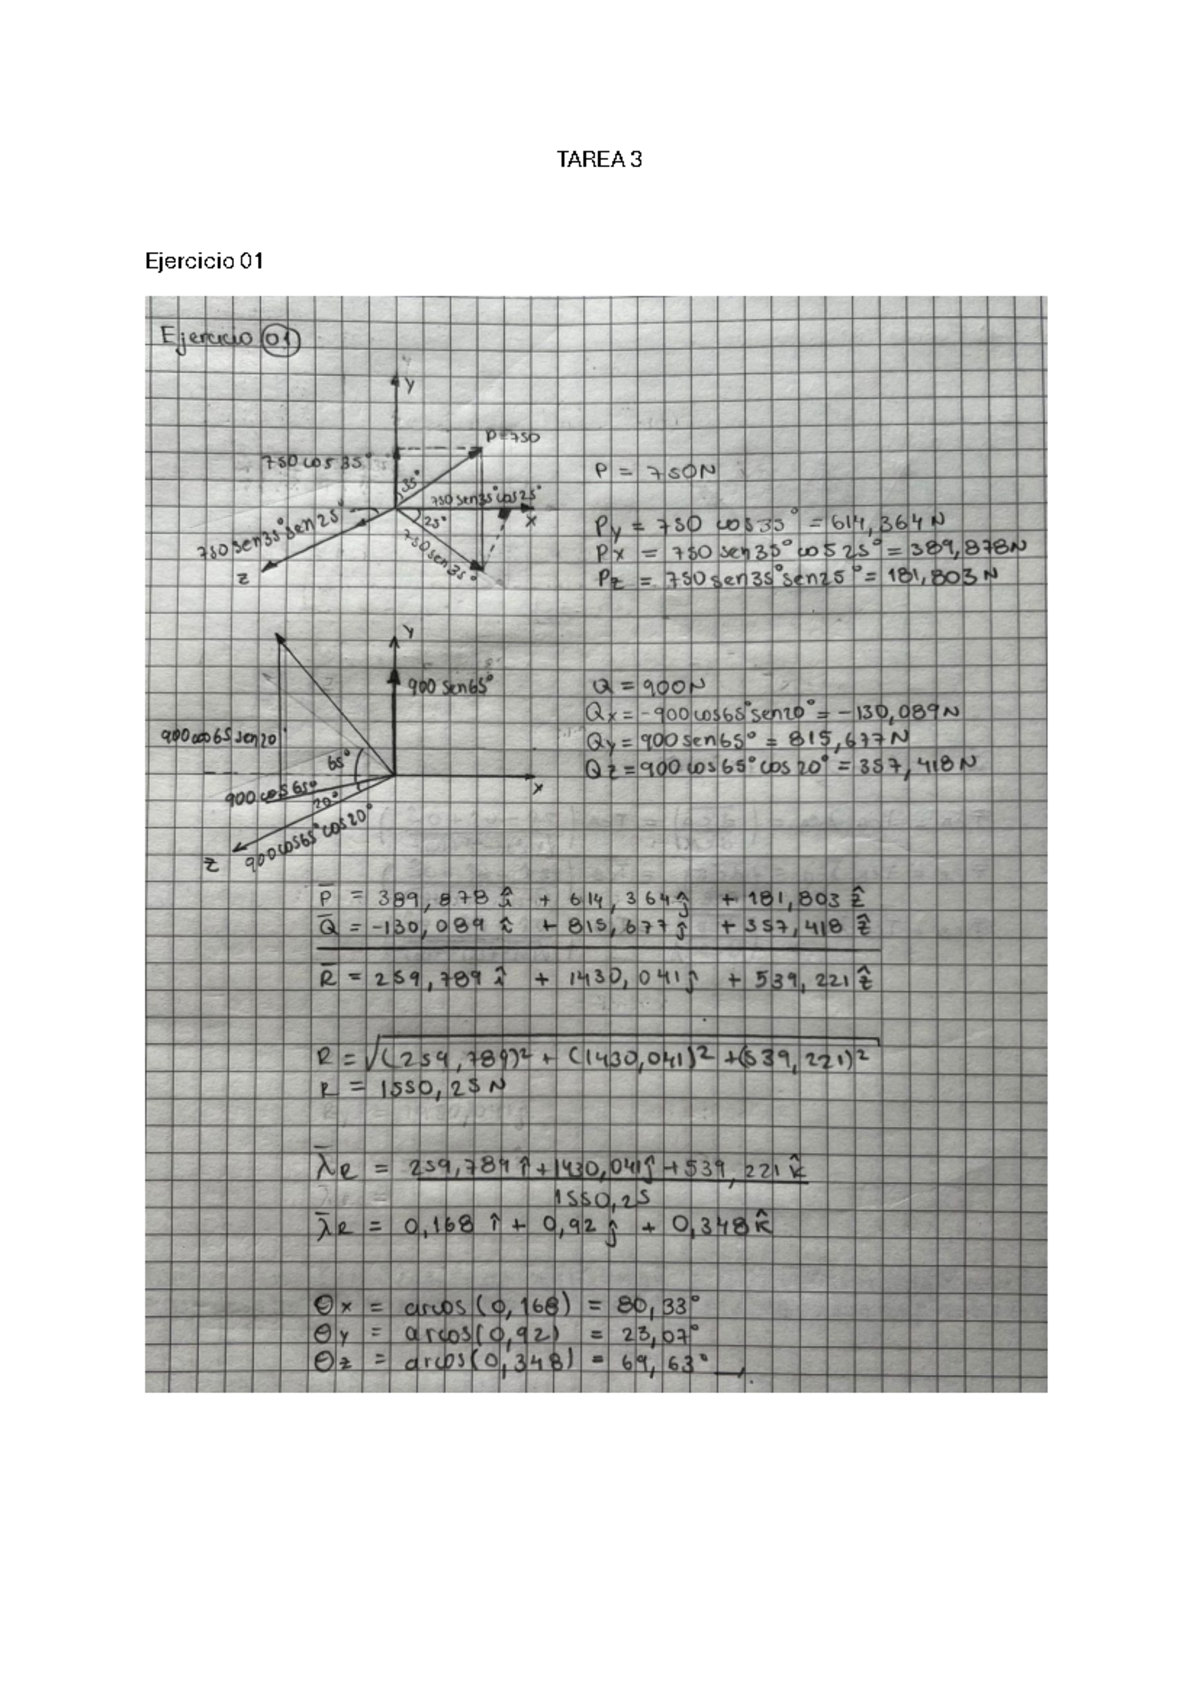 TAREA 3
Ejercicio 01
Ejercicio 01
y
P=750
750 cos 35°
35°
750 sen35°cos25°
x
25°
750 sen35°sen25°
750 sen35°
z
P = 750N
Py = 750 cos 35° = 614,364 N
Px = 750 sen35° cos 25° = 389,878N
Pz = 750 sen35°sen25° = 181,803 N
y
900 sen65°
900cos65 sen20
65°
x
900 cos 65°
20°
900cos65°cos20°
z
Q = 900N
Qx = -900cos65°sen20° = -130,089N
Qy = 900 sen65° = 815,677N
Qz = 900 cos 65° cos 20° = 357,418N
P̄ = 389,878 î + 614,364 ĵ + 181,803 ẑ
Q̄ = -130,089 î + 815,677 ĵ + 357,418 ẑ
R̄ = 259,789 î + 1430,041 ĵ + 539,221 ẑ
R = √(259,789)² + (1430,041)² + (539,221)²
R = 1550,25 N
λ̄R = 259,789 î + 1430,041 ĵ + 539,221 k̂
1550,25
λ̄R = 0,168 î + 0,92 ĵ + 0,348 k̂
θx = arcos (0,168) = 80,33°
θy = arcos(0,92) = 23,07°
θz = arcos(0,348) = 69,63°